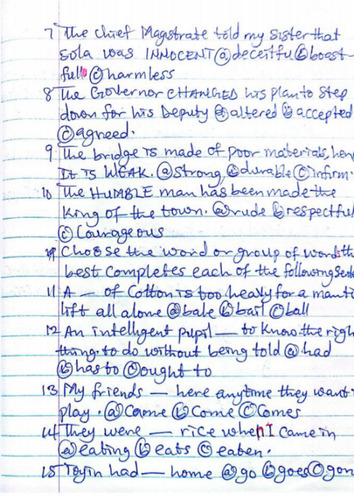 7 The Chief Magstrate told my sister that
Sola was INNOCENT (a) deceitful (b) boast-
full (c) harmless
8 The Governor CHANGED his plan to step
down for his Deputy (a) altered (b) accepted
(c) agreed.
9 The bridge is made of poor materials, hen
It is WEAK. (a) strong (b) durable (c) infirm.
10 The HUMBLE man has been made the
King of the town. (a) rude (b) respectful
(c) Courageous
Choose the word or group of words th
best completes each of the following sent
11 A — of Cotton is too heavy for a man to
lift all alone (a) bale (b) bail (c) ball
12 An intelligent pupil — to know the righ
thing to do without being told (a) had
(b) has to (c) ought to
13 My friends — here anytime they want
play. (a) Came (b) Come (c) Comes
14 They were — rice when I came in
(a) eating (b) eats (c) eaten.
15 Toyin had — home (a) go (b) goes (c) gon